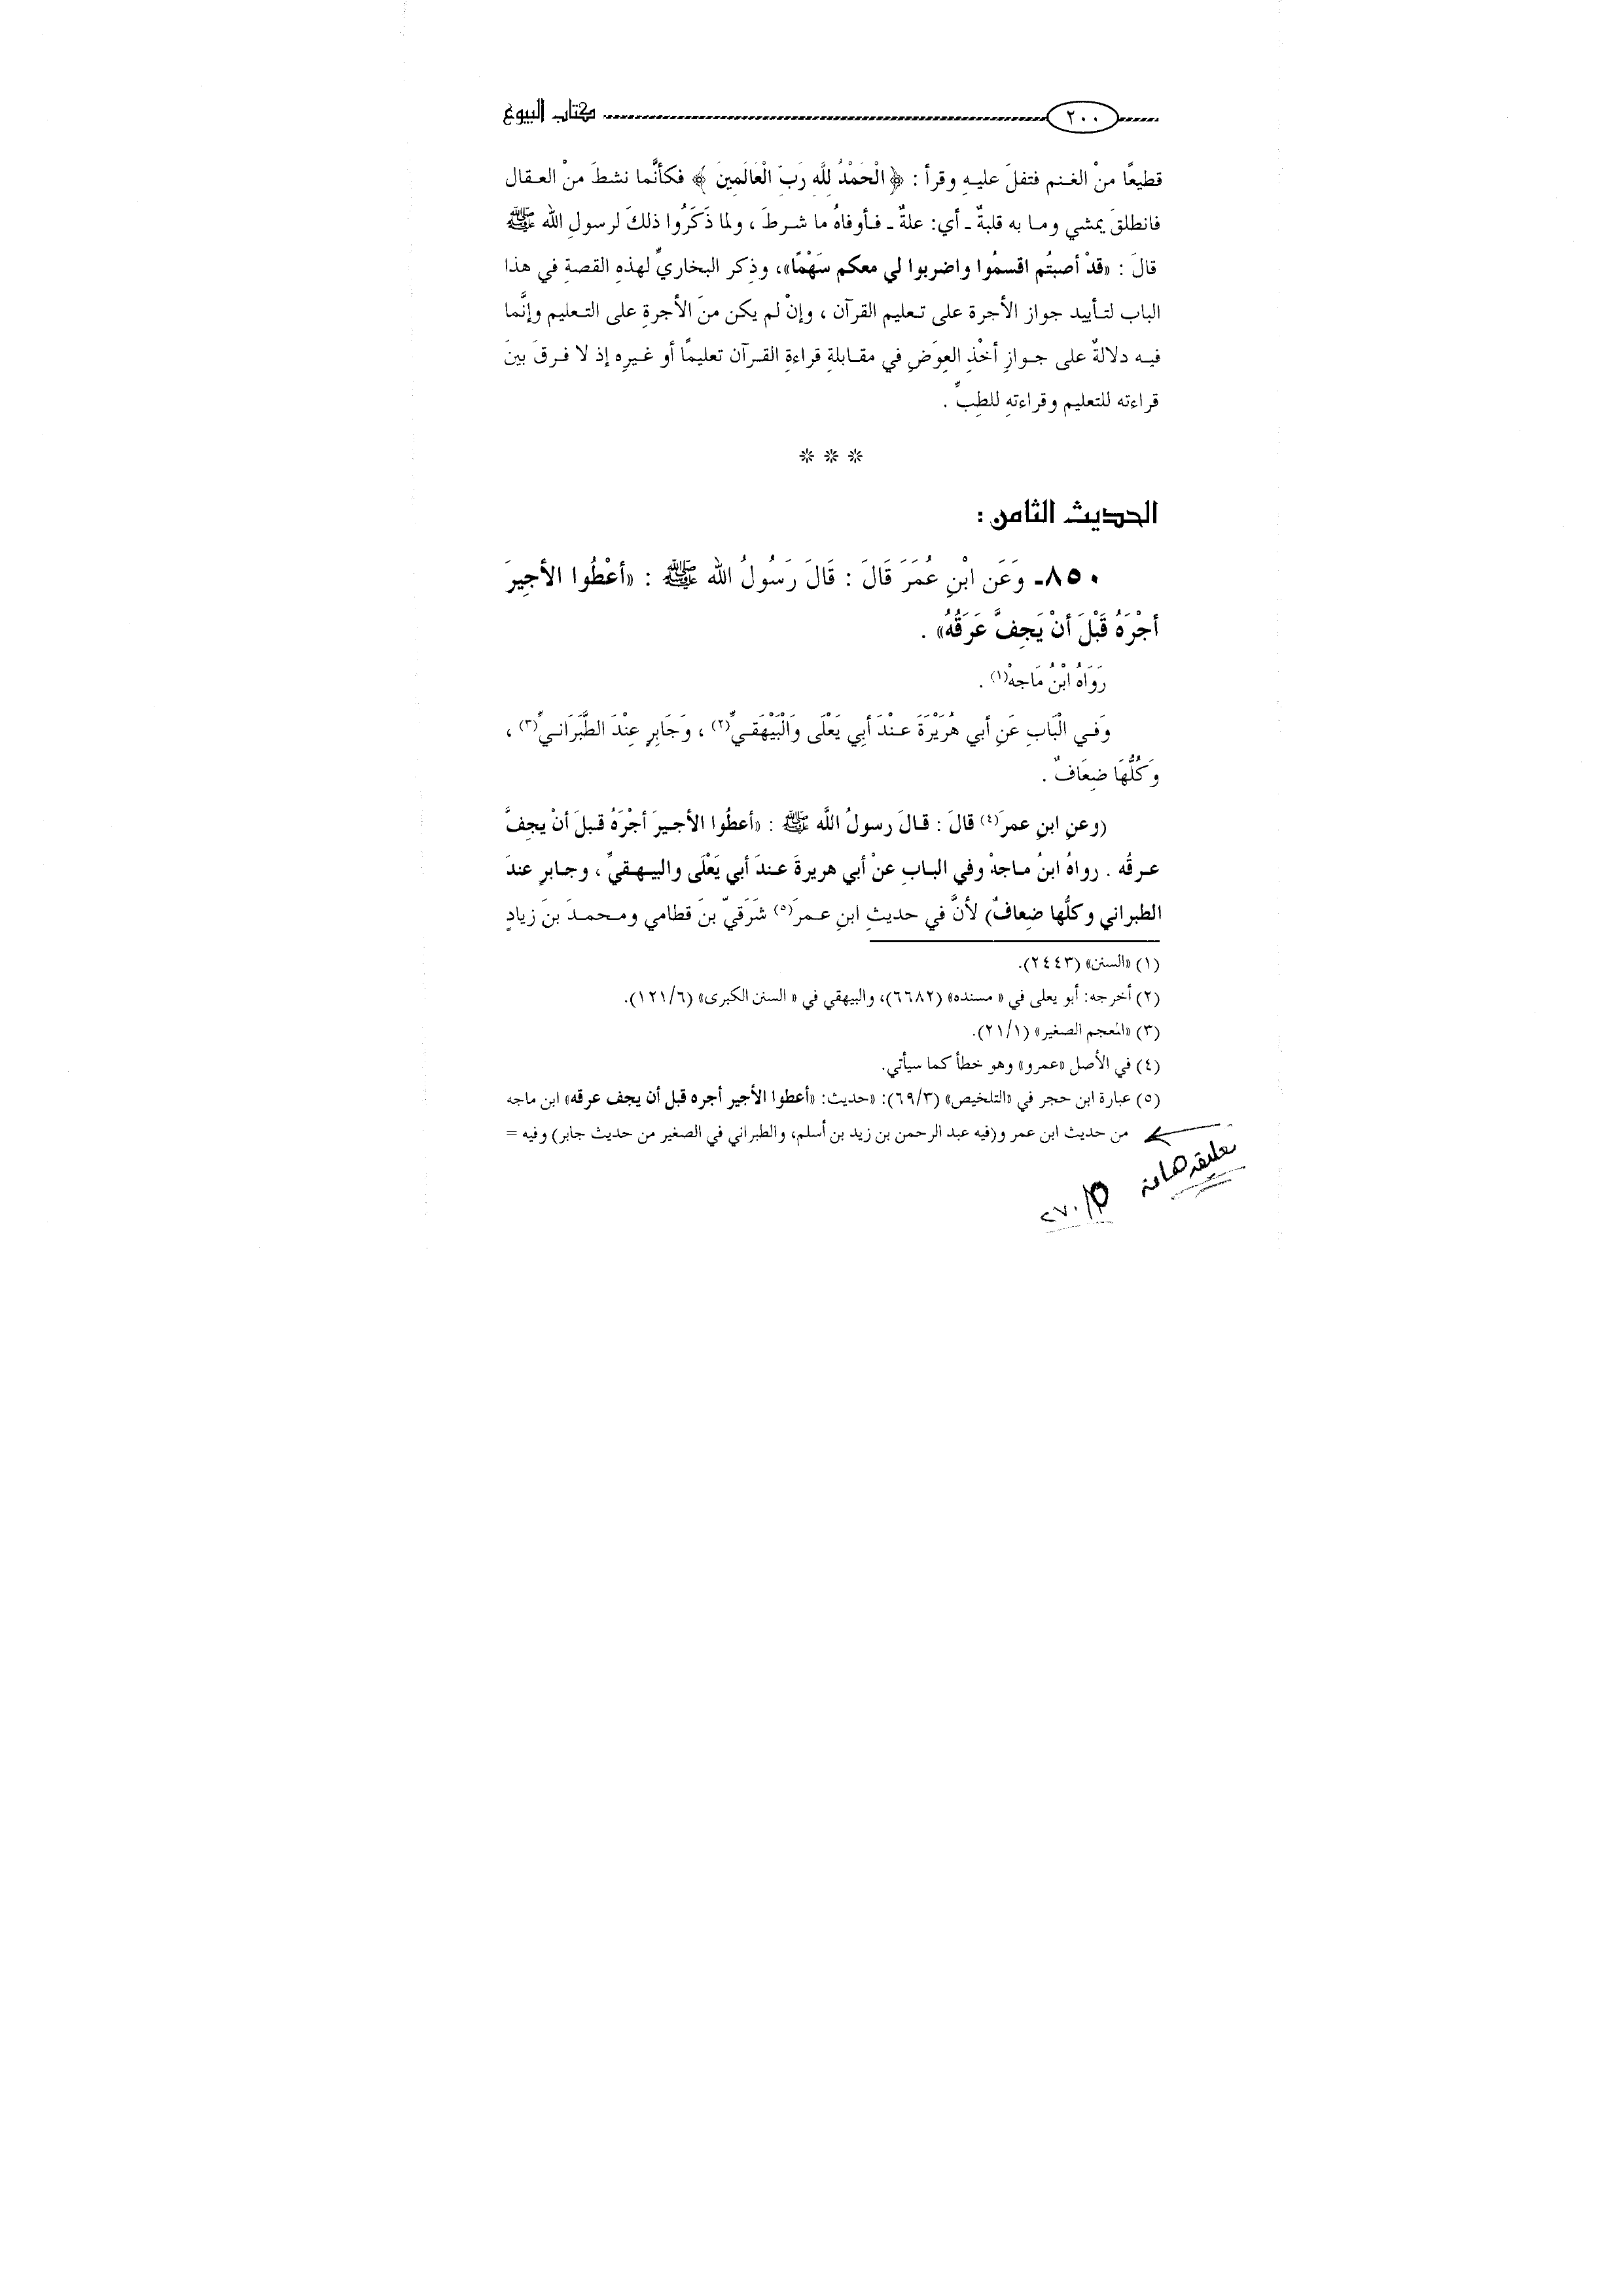 ٢٠٠ كتاب البيوع
قطيعًا منْ الغنم فتفلَ عليهِ وقرأ : ﴿ الْحَمْدُ لِلَّهِ رَبِّ الْعَالَمِينَ ﴾ فكأنَّما نشطَ منْ العقال
فانطلقَ يمشي وما به قلبةٌ ـ أي: علةٌ ـ فأوفاهُ ما شرطَ ، ولما ذَكَرُوا ذلكَ لرسولِ الله ﷺ
قالَ : «قدْ أصبتُم اقسمُوا واضربوا لي معكم سَهْمًا»، وذِكر البخاريِّ لهذهِ القصةِ في هذا
الباب لتأييد جواز الأجرة على تعليم القرآن ، وإنْ لم يكن منَ الأجرةِ على التعليم وإنَّما
فيه دلالةٌ على جوازِ أخْذِ العِوَضِ في مقابلةِ قراءةِ القرآن تعليمًا أو غيرِه إذ لا فرقَ بينَ
قراءته للتعليم وقراءتهِ للطِبِّ .
* * *
الحديث الثامن :
٨٥٠ـ وَعَن ابْنِ عُمَرَ قَالَ : قَالَ رَسُولُ الله ﷺ : «أعْطُوا الأجِيرَ
أجْرَهُ قَبْلَ أنْ يَجِفَّ عَرَقُهُ» .
رَوَاهُ ابْنُ مَاجهْ(١) .
وَفي الْبَابِ عَنِ أبي هُرَيْرَةَ عنْدَ أبِي يَعْلَى وَالْبَيْهَقيِّ(٢) ، وَجَابِرٍ عِنْدَ الطَّبَرَانيِّ(٣) ،
وَكُلُّهَا ضِعَافٌ .
(وعنِ ابنِ عمرَ(٤) قالَ : قالَ رسولُ اللَّه ﷺ : «أعطُوا الأجيرَ أجْرَهُ قبلَ أنْ يجِفَّ
عرقُه . رواهُ ابنُ ماجهْ وفي البابِ عنْ أبي هريرةَ عندَ أبي يَعْلَى والبيهقيِّ ، وجابرٍ عندَ
الطبراني وكلُّها ضِعافٌ) لأنَّ في حديثِ ابنِ عمرَ(٥) شَرَقيّ بنَ قطامي ومحمدَ بنَ زيادٍ
(١) «السنن» (٢٤٤٣).
(٢) أخرجه: أبو يعلى في « مسنده» (٦٦٨٢)، والبيهقي في « السنن الكبرى» (١٢١/٦).
(٣) «المعجم الصغير» (٢١/١).
(٤) في الأصل «عمرو» وهو خطأ كما سيأتي.
(٥) عبارة ابن حجر في «التلخيص» (٦٩/٣): «حديث: «أعطوا الأجير أجره قبل أن يجف عرقه» ابن ماجه
من حديث ابن عمر و(فيه عبد الرحمن بن زيد بن أسلم، والطبراني في الصغير من حديث جابر) وفيه =
تعليقه هامة